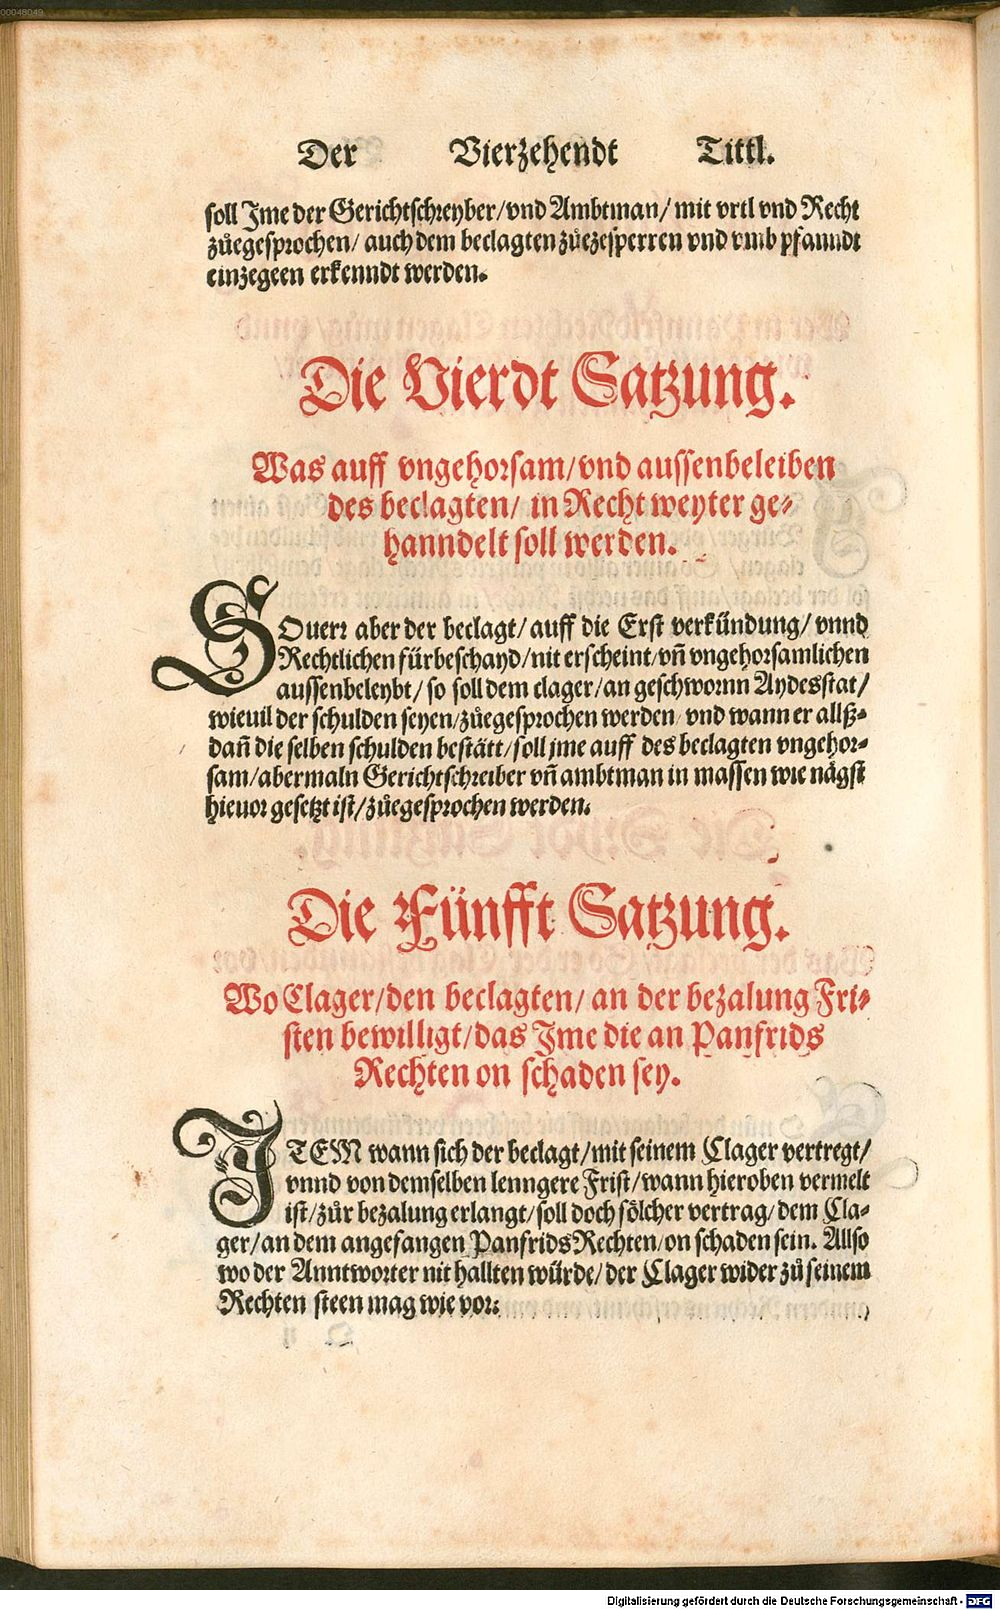 00048049
Der Vierzehendt Tittl.
soll Jme der Gerichtschreyber/vnd Ambtman/ mit vrtl vnd Recht
zůegesprochen/ auch dem beclagten zůezesperren vnd vmb pfanndt
einzegeen erkenndt werden.
Die Vierdt Satzung.
Was auff vngehorsam/vnd aussenbeleiben
des beclagten/ in Recht weyter ge-
hanndelt soll werden.
SOuerr aber der beclagt/ auff die Erst verkündung/ vnnd
Rechtlichen fürbeschayd/nit erscheint/vn̄ vngehorsamlichen
aussenbeleybt/ so soll dem clager/an geschwornn Aydesstat/
wieuil der schulden seyen/zůegesprochen werden/ vnd wann er allß-
dan̄ die selben schulden bestätt/soll jme auff des beclagten vngehor-
sam/abermaln Gerichtschreiber vn̄ ambtman in massen wie nägst
hieuor gesetzt ist/zůegesprochen werden.
Die Fünfft Satzung.
Wo Clager/den beclagten/ an der bezalung Fri-
sten bewilligt/das Jme die an Panfrids
Rechten on schaden sey.
JTEM wann sich der beclagt/mit seinem Clager vertregt/
vnnd von demselben lenngere Frist/wann hieroben vermelt
ist/zůr bezalung erlangt/soll doch sölcher vertrag/ dem Cla-
ger/an dem angefangen Panfrids Rechten/on schaden sein. Allso
wo der Anntworter nit hallten würde/der Clager wider zů seinem
Rechten steen mag wie vor.
Digitalisierung gefördert durch die Deutsche Forschungsgemeinschaft - DFG